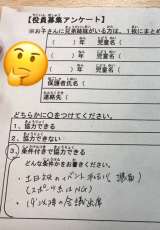 【役員募集アンケート】
※お子さんに兄弟姉妹がいる方は、1枚にまとめ
( )年 児童名(
( )年 児童名(
( )年 児童名(
保護者氏名(
連絡先(
どちらかに○をつけてください。
1、協力できる
2、協力できない
3、条件付きで協力できる
どんな条件かをお書きください。
・土日祝のイベント
(スポーツ系はNG)
の会議出席